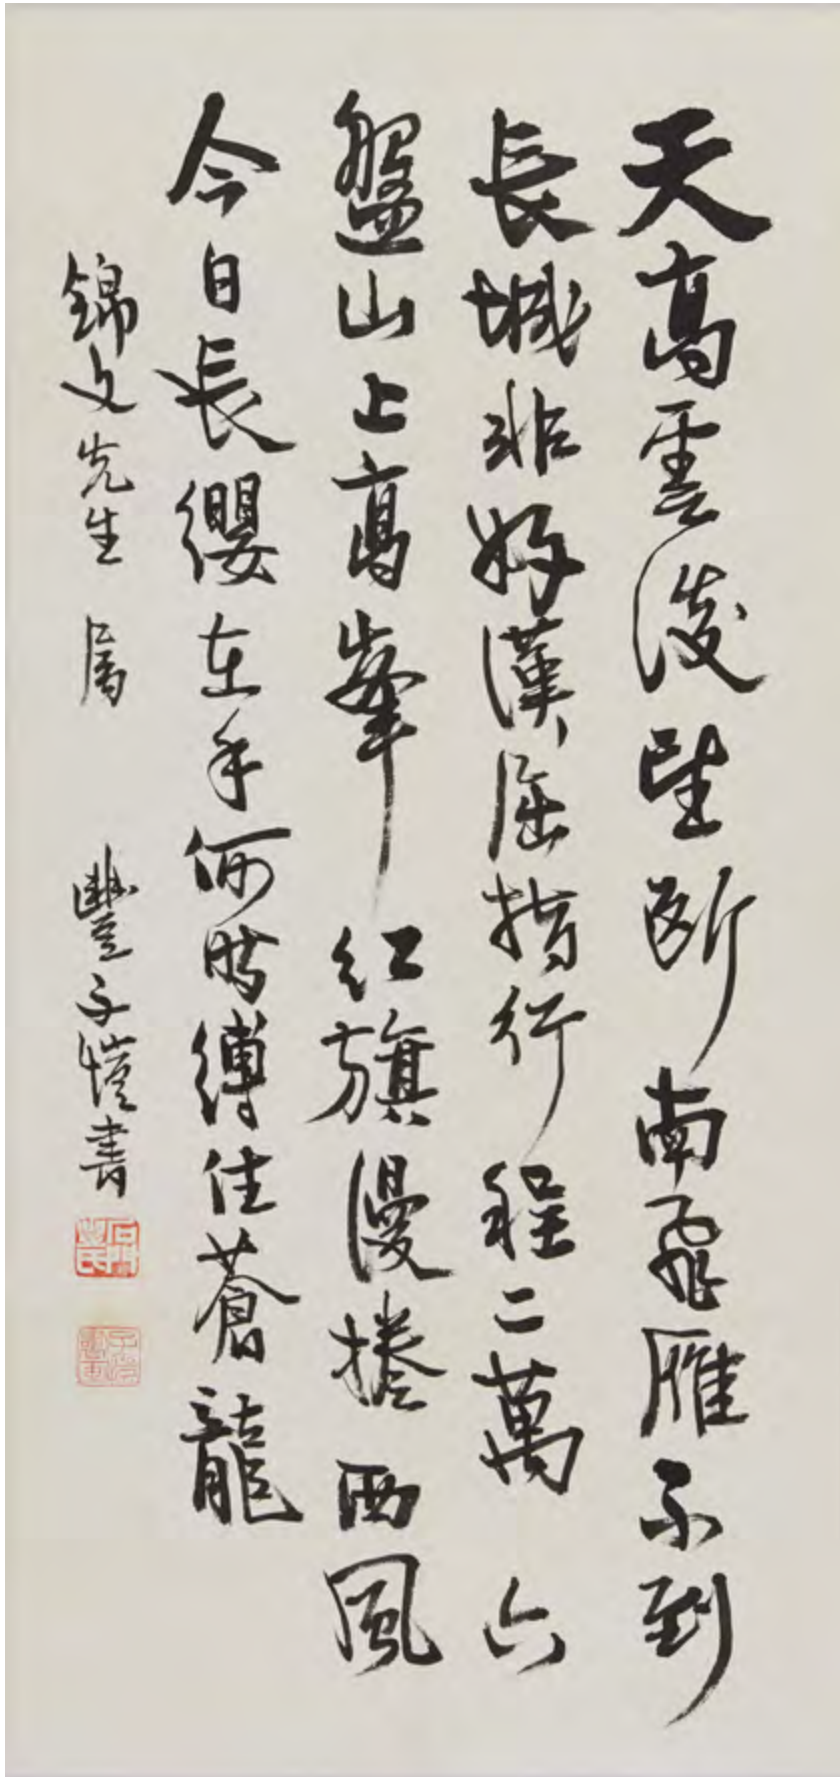 天高雲淡望斷南飛雁不到
長城非好漢屈指行程二萬六
盤山上高峯紅旗漫捲西風
今日長纓在手何時縛住蒼龍
錦文先生 屬 豐子愷書